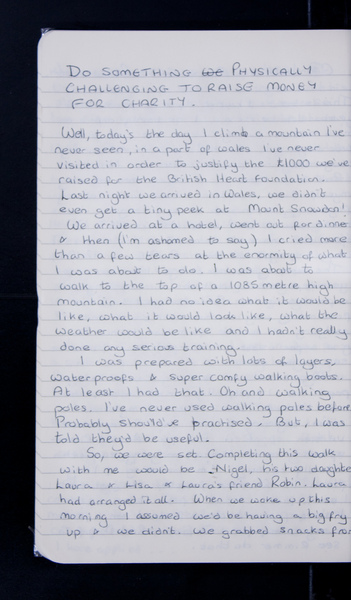 DO SOMETHING PHYSICALLY
CHALLENGING TO RAISE MONEY
FOR CHARITY.
Well, today's the day I climb a mountain I've
never seen, in a part of Wales I've never
visited in order to justify the £1000 we've
raised for the British Heart Foundation.
Last night we arrived in Wales, we didn't
even get a tiny peek at Mount Snowdon!
We arrived at a hotel, went out for dinne
& then (I'm ashamed to say) I cried more
than a few tears at the enormity of what
I was about to do. I was about to
walk to the top of a 1085 metre high
mountain. I had no idea what it would be
like, what it would look like, what the
weather would be like and I hadn't really
done any serious training.
I was prepared with lots of layers,
waterproofs & super comfy walking boots.
At least I had that. Oh and walking
poles. I've never used walking poles before
Probably should've practised. But, I was
told they'd be useful.
So, we were set. Completing this walk
with me would be Nigel, his two daughte
Laura & Lisa & Laura's friend Robin. Laura
had arranged it all. When we woke up this
morning I assumed we'd be having a big fry
up & we didn't. We grabbed snacks from